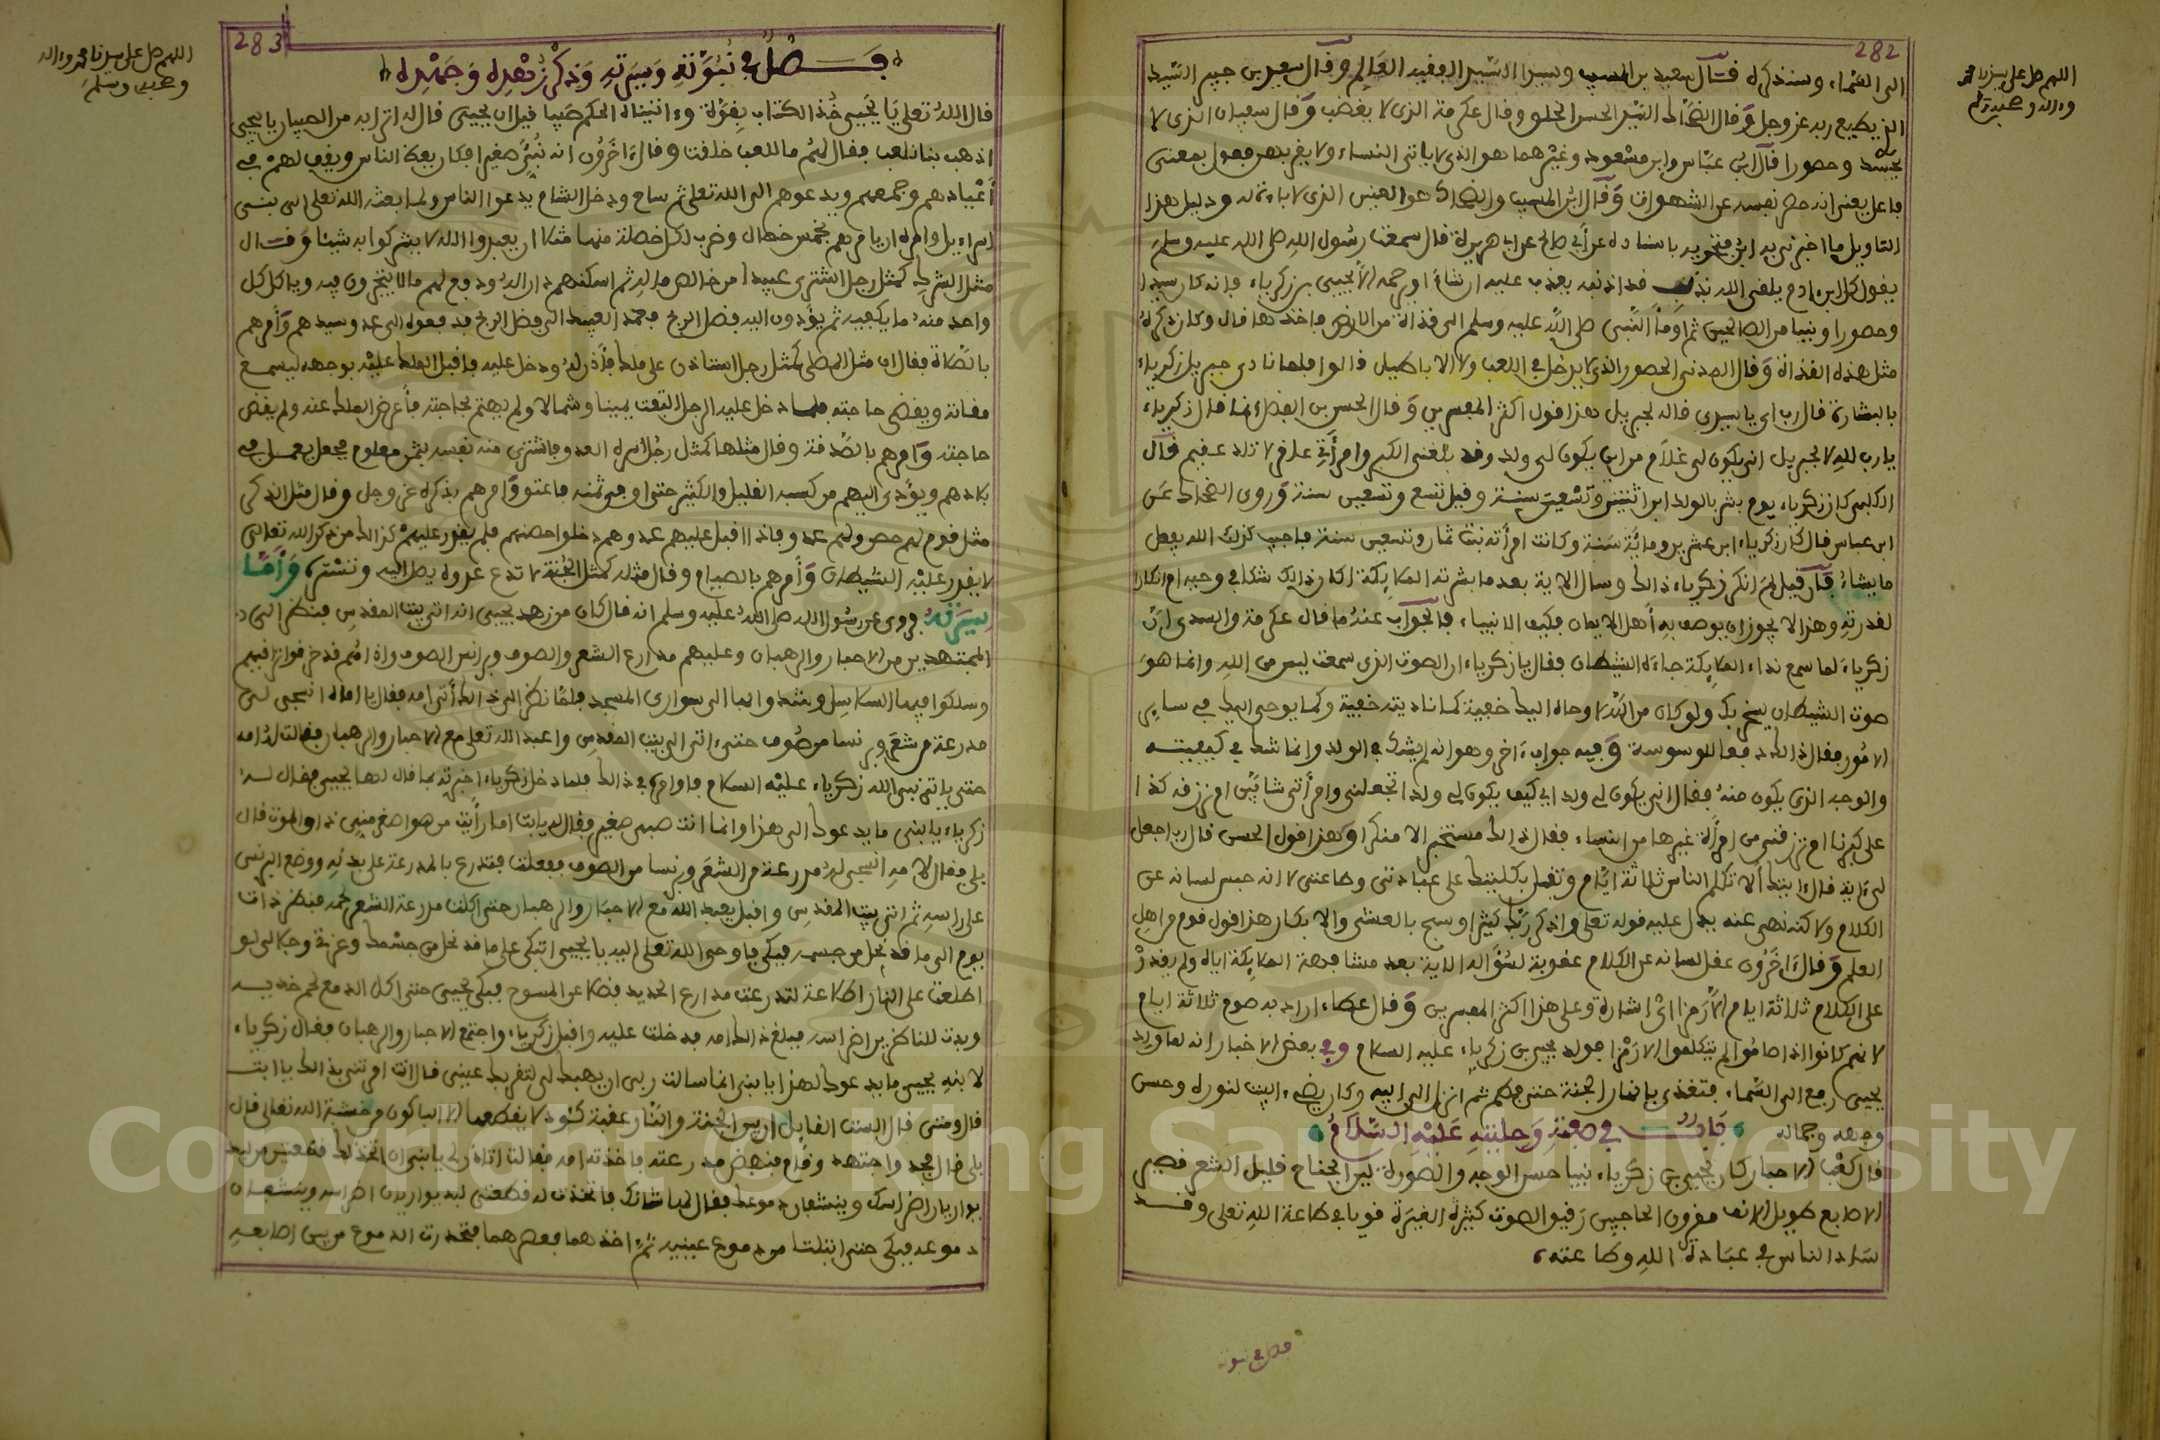 282
الى السماء وسنذكره قال سعيد بن المسيب وسيدا السيد الفقيه العالم وقال سعيد بن جبير السيد
الذي يطيع ربه عز وجل وقال الضحاك السيد الحسن الخلق وقال عكرمة الذي لا يغضب وقال سفيان الذي لا
يحسد وحصورا قال ابن عباس وابن مسعود وغيرهما هو الذي لا ياتى النساء ولا يقربهن فعول بمعنى
فاعل يعنى انه حصر نفسه عن الشهوات وقال ابن المسيب والضحاك هو العنين الذي لا ماء له ودليل هذا
التاويل ما اخبرني به ابن فنجويه باسناده عن أبي صالح عن ابى هريرة قال سمعت رسول الله صلى الله عليه وسلم
يقول كل ابن ادم يلقى الله بذنب قد اذنبه يعذبه عليه ان شاء او يرحمه الا يحيى بن زكرياء فانه كان سيدا
وحصورا ونبيا من الصالحين ثم اومأ النبى صلى الله عليه وسلم الى قذاة من الارض فاخذها قال وكان ذكره
مثل هذه القذاة وقال المدنى الحصور الذي لا يدخل في اللعب ولا الاباطيل قالوا فلما نادى جبريل زكرياء
بالبشارة قال رب اى يا سيدى قاله لجبريل هذا قول اكثر المفسرين وقال الحسن بن الفضل انما قال زكرياء
يا رب لله لا لجبريل انى يكون لى غلام من اين يكون لى ولد وقد بلغنى الكبر وامرأتي عاقر لا تلد عقيم قال
الكلبى كان زكرياء يوم بشر بالولد ابن اثنتين وتسعين سنة وقيل تسع وتسعين سنة وروى الضحاك عن
ابن عباس قال كان زكرياء ابن عشرين ومائة سنة وكانت امرأته بنت ثمان وتسعين سنة فاجيب كذلك الله يفعل
ما يشاء فان قيل لم انكر زكرياء ذالك وسال الاية بعد ما بشرته الملايكة اكان ذالك شكا في وحيه ام انكارا
لقدرته وهذا لا يجوز ان يوصف به أهل الايمان فكيف الانبياء فالجواب عنه ما قال عكرمة والسدى ان
زكرياء لما سمع نداء الملايكة جاءه الشيطان فقال يا زكرياء ان الصوت الذي سمعت ليس من الله وانما هو
صوت الشيطان يسخر بك ولو كان من الله لاوحاه اليك خفية كما ناديته خفية وكما يوحى اليك في ساير
الامور فقال ذالك دفعا للوسوسة وفيه جواب ءاخر وهو انه لم يشك في الولد وانما شك في كيفيته
والوجه الذي يكون منه فقال انى يكون لي ولد اي كيف يكون لي ولد اتجعلنى وامرأتى شابين ام ترزقه كذا
على كبرنا ام ترزقنيه من امرأة غيرها من النساء فقال ذالك مستخبرا لا منكرا وهذا قول الحسن قال رب اجعل
لى ءاية قال ءايتك ألا تكلم الناس ثلاثة ايام وتقبل بكليتك على عبادتى وطاعتى لا انه حبس لسانه عن
الكلام ولاكنه نهى عنه يدل عليه قوله تعلى واذكر ربك كثيرا وسبح بالعشى والابكار هذا قول قوم من اهل
العلم وقال ءاخرون عقل لسانه عن الكلام عقوبة لسؤاله الاية بعد مشافهة الملايكة اياه ولم يقدر
على الكلام ثلاثة ايام الا رمزا اى اشارة وعلى هذا اكثر المفسرين وقال عطاء اراد به صوم ثلاثة ايام
لانهم كانوا اذا صاموا لم يتكلموا الا رمزا فولد يحيى بن زكرياء عليه السلام وفي بعض الاخبار انه لما ولد
يحيى رفع الى السماء فتغذى بانهار الجنة حتى فطم ثم انزل الى ابيه وكان يضيء البيت لنوره وحسن
وجهه وجماله باب في صفته وحليته عليه السلام
قال كعب الاحبار كان يحيى بن زكرياء نبيا حسن الوجه والصورة لين الجناح قليل الشعر قصير
الاصابع طويل الانف مقرون الحاجبين رقيق الصوت كثير الغيرة قويا في طاعة الله تعلى وقد
ساد الناس في عبادة الله وطاعته
فصل في نبوته
اللهم صل على سيدنا محمد
وءاله وصحبه وسلم
283
فصل في نبوته وسيرته وذكر زهده وجهده
قال الله تعلى يا يحيى خذ الكتاب بقوة وءاتيناه الحكم صبيا قيل ان يحيى قال له اترابه من الصبيان يا يحيى
اذهب بنا نلعب فقال لهم ما للعب خلقت وقال ءاخرون انه نبئ صغيرا فكان يعظ الناس ويقف لهم في
أعيادهم وجمعهم ويدعوهم الى الله تعلى ثم ساح ودخل الشام يدعوا الناس ولما بعثه الله تعلى الى بنى
اسراءيل وامره ان يامرهم بخمس خصال وضرب لكل خصلة منها مثلا ان يعبدوا الله لا يشركوا به شيئا وقال
مثل الشرك كمثل رجل اشترى عبيدا من خالص ماله ثم اسكنهم دارا له ودفع لهم مالا يتجرون فيه وياكل كل
واحد منه ما يكفيه ثم يؤدون اليه فضل الربح فعمد العبيد الى فضل الربح فدفعوه الى عدو سيدهم وأمرهم
بالصلاة فقال ان مثل المصلى كمثل رجل استاذن على ملك فأذن له ودخل عليه فاقبل الملك عليه بوجهه ليسمع
مقالته ويقضى حاجته فلما دخل عليه الرجل التفت يمينا وشمالا ولم يهتم بحاجته فأعرض الملك عنه ولم يقض
حاجته وأمرهم بالصدقة وقال مثلها كمثل رجل اسره العدو فاشترى منه نفسه بثمن معلوم فجعل يعمل في
بلادهم ويؤدى اليهم من كسبه القليل والكثير حتى اوفى ثمنه فاعتق وأمرهم بذكره عز وجل وقال مثل الذكر
مثل قوم لهم حصن ولهم عدو فاذا اقبل عليهم عدوهم دخلوا حصنهم فلم يقدر عليهم كذالك من ذكر الله تعالى
لا يقدر عليه الشيطان وأمرهم بالصيام وقال مثله كمثل الجنة لا تدع عدوه يصل اليه وتستره وأما
سيرته فروي عن رسول الله صلى الله عليه وسلم انه قال كان من زهد يحيى انه اتى بيت المقدس فنظر الى
المجتهدين من الاحبار والرهبان وعليهم مدارع الشعر والصوف وبرانس الصوف واذا هم قد خرقوا تراقيهم
وسلكوا فيها السلاسل وشدوا بها الى سوارى المسجد فلما نظر الى ذالك أتى امه فقال يا اماه انسجى لى
مدرعة من شعر وبرنسا من صوف حتى ءاتى الى بيت المقدس واعبد الله تعلى مع الاحبار والرهبان فقالت له امه
حتى ياتى نبى الله زكرياء عليه السلام فاوامره في ذالك فلما دخل زكرياء اخبرته بما قال لها يحيى فقال له
زكرياء يا بنى ما يدعوك الى هذا وانما انت صبى صغير فقال له يا ابت اما رأيت من هو اصغر منى ذاق الموت قال
بلى فقال لامه انسجى له مدرعة من الشعر وبرنسا من الصوف ففعلت فتدرع بالمدرعة على بدنه ووضع البرنس
على راسه ثم اتى بيت المقدس واقبل يعبد الله مع الاحبار والرهبان حتى اكلت مدرعة الشعر لحمه فنظر ذات
يوم الى ما قد نحل من جسمه فبكى فاوحى الله تعلى اليه يا يحيى اتبكى على ما قد نحل من جسمك وعزتى وجلالى لو
اطلعت على النار اطلاعة لتدرعت مدارع الحديد فضلا عن المسوح فبكى يحيى حتى اكل الدمع لحم خديه
وبدت للناظرين اضراسه فبلغ ذالك امه فدخلت عليه واقبل زكرياء واجتمع الاحبار والرهبان فقال زكرياء
لابنه يحيى ما يدعوك لهذا يا بنى انما سالت ربى ان يهبك لى لتقر بك عينى قال انت امرتنى بذالك يا ابت
قال ومتى قال الست القايل ان بين الجنة والنار عقبة كئود لا يقطعها الا الباكون من خشية الله تعلى قال
بلى قال فجد واجتهد وقام فنفض مدرعته فاخذته امه فقالت اتاذن لى يا بنى ان اتخذ لك قطعتين من لبد
يواريان اضراسك وينشفان دموعك فقال لها شانك فاتخذت له قطعتى لبد يواريان اضراسه وينشفان
دموعه فبكى حتى ابتلتا من دموع عينيه ثم اخذهما فعصرهما فتحدرت الدموع من بين اصابعه
اللهم صل على سيدنا محمد وءاله
وصحبه وسلم
Copyright © King Saud University